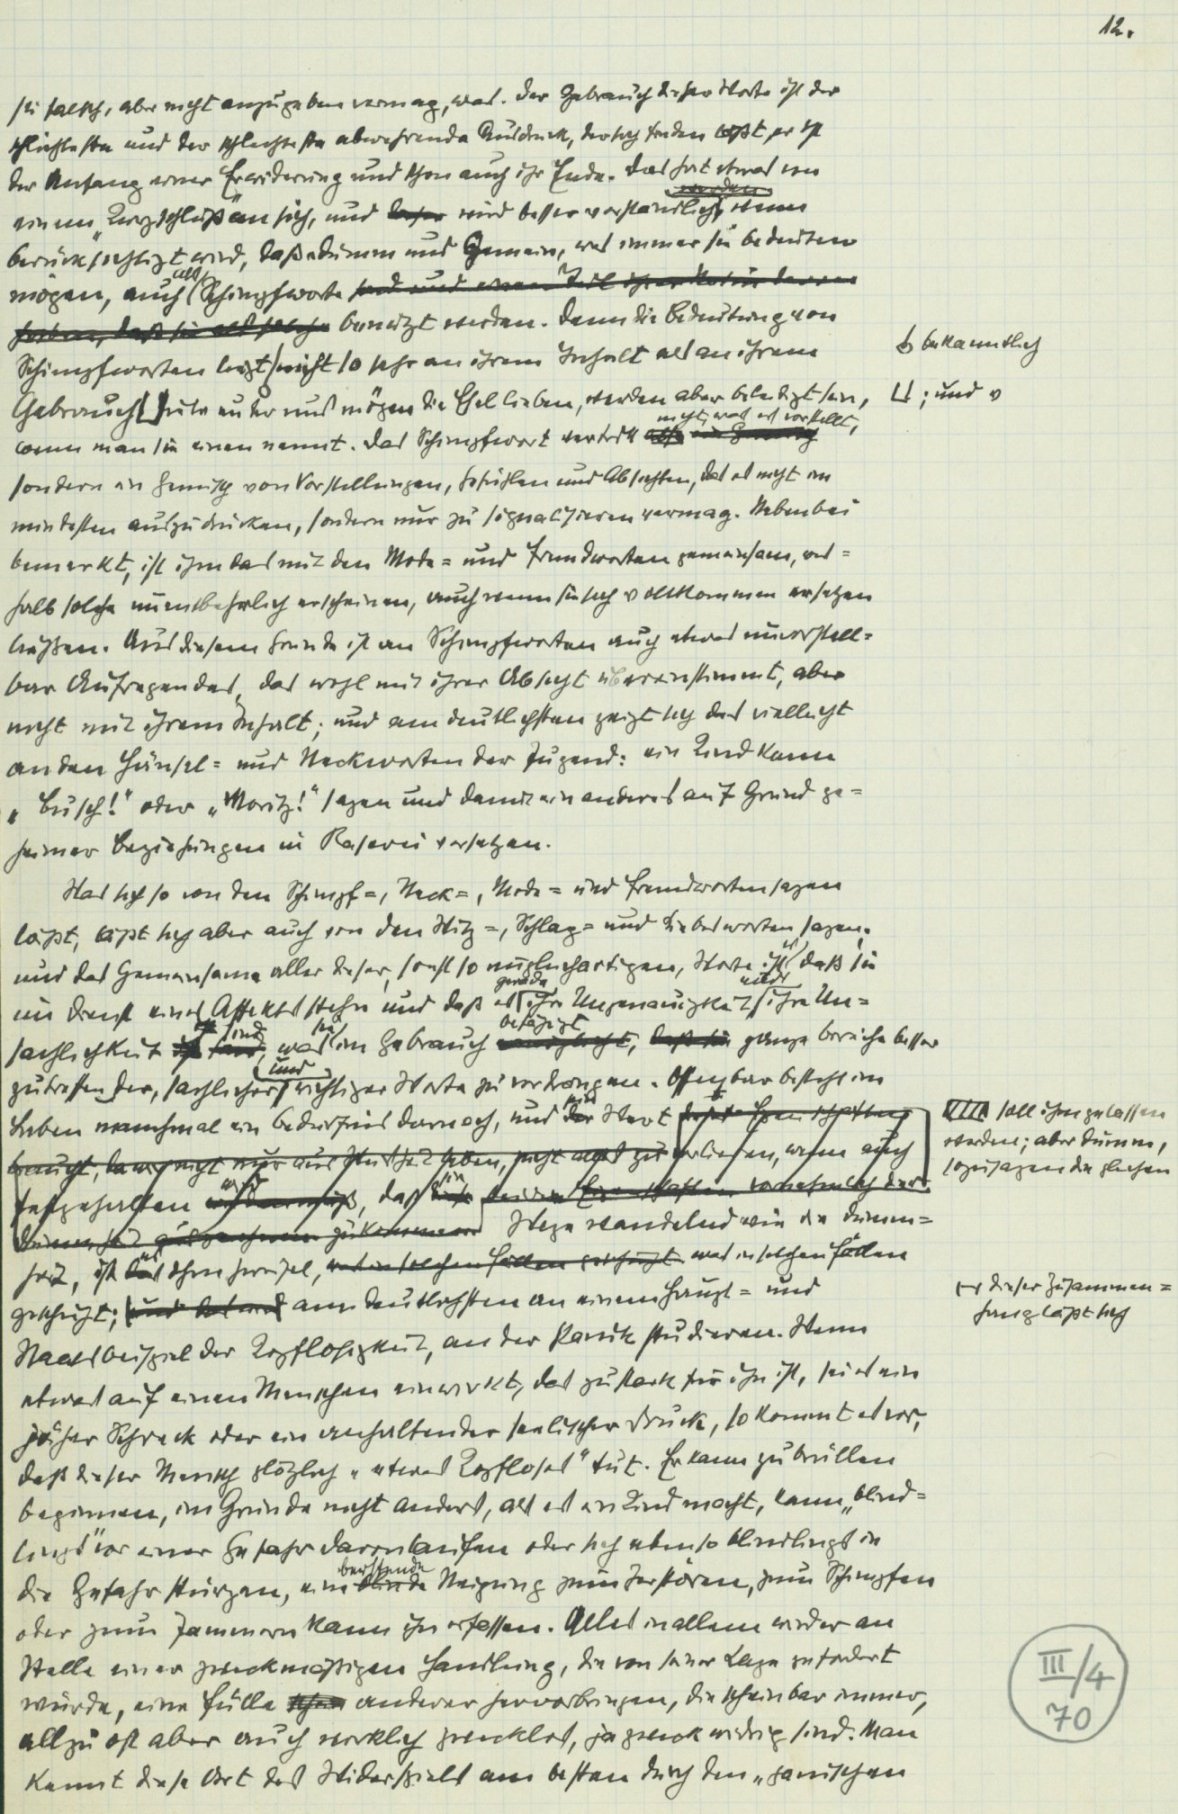 12.
sei falsch, aber nicht anzugeben vermag, was. Der Gebrauch dieser Worte ist der
schlichteste und der schlechteste abwehrende Ausdruck, der sich finden läßt, er ist
der Anfang einer Erwiderung und schon auch ihr Ende. Das hat etwas von
einem „Kurzschluß" an sich, und dieser wird besser verständlich werden, wenn
berücksichtigt wird, daß dumm und gemein, was immer sie bedeuten
mögen, auch als Schimpfworte sind und einen Teil ihrer darin
haben, daß sie als solche benützt werden. Denn die Bedeutung von
Schimpfworten liegt bekanntlich nicht so sehr an ihrem Inhalt als an ihrem
Gebrauch; und viele unter uns mögen die Esel lieben, werden aber beleidigt sein,
wenn man sie einen nennt. Das Schimpfwort vertritt nicht, was es vorstellt,
sondern ein Gemisch von Vorstellungen, Gefühlen und Absichten, das es nicht im
mindesten auszudrücken, sondern nur zu signalisieren vermag. Nebenbei
bemerkt, ist ihm das mit den Mode= und Fremdworten gemeinsam, wes=
halb solche unentbehrlich erscheinen, auch wenn sie sich vollkommen ersetzen
ließen. Aus diesem Grunde ist an Schimpfworten auch etwas unvorstell=
bar Aufregendes, das wohl mit ihrer Absicht übereinstimmt, aber
nicht mit ihrem Inhalt; und am deutlichsten zeigt sich das vielleicht
an den Hänsel= und Neckworten der Jugend: ein Kind kann
„Busch!" oder „Moritz!" sagen und damit ein anderes auf Grund ge=
heimer Beziehungen in Raserei versetzen.
Was sich so von den Schimpf=, Neck=, Mode= und Fremdworten sagen
läßt, läßt sich aber auch von den Witz=, Schlag= und Liebesworten sagen;
und das Gemeinsame aller dieser, sonst so ungleichartigen, Worte ist es, daß sie
im Dienst eines Affekts stehn und daß es gerade ihre Ungenauigkeit und ihre Un=
sachlichkeit sind, was sie im Gebrauch befähigt, ganze Bereiche besser
zutreffender, sachlicher und richtiger Worte zu verdrängen. Offenbar besteht im
Leben manchmal ein Bedürfnis danach, und sein Wert soll ihm gelassen
werden; aber dumm,
sozusagen die gleichen
Wege wandelnd wie die Dumm=
heit, ist es ohne Zweifel, was in solchen Fällen
geschieht; dieser Zusammen=
hang läßt sich
am deutlichsten an einem Haupt= und
Staatsbeispiel der Kopflosigkeit, an der Panik studieren. Wenn
etwas auf einen Menschen einwirkt, das zu stark für ihn ist, sei es ein
jäher Schreck oder ein anhaltender seelischer Druck, so kommt es vor,
daß dieser Mensch plötzlich „etwas Kopfloses" tut. Er kann zu brüllen
beginnen, im Grunde nicht anders, als es ein Kind macht, kann „blind=
lings" vor einer Gefahr davonlaufen oder sich ebenso blindlings in
die Gefahr stürzen, eine berstende blinde Neigung zum Zerstören, zum Schimpfen
oder zum Jammern kann ihn erfassen. Alles in allem wird er an
Stelle einer zweckmäßigen Handlung, die von seiner Lage gefordert
würde, eine Fülle anderer hervorbringen, die scheinbar immer,
allzu oft aber auch wirklich zwecklos, ja zweckwidrig sind. Man
kennt diese Art des Widerspiels am besten durch den „panischen
III/4
70